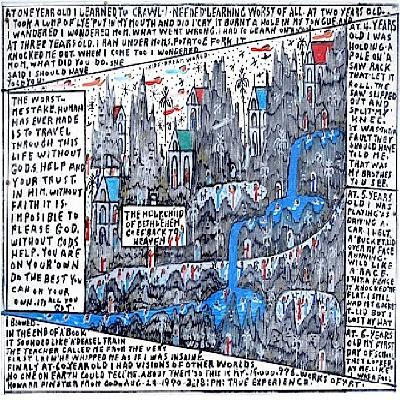 AT ONE YEAR OLD I LEARNED TO CRAWL
LEARNING WORST OF ALL. AT TWO YEARS OLD
I TOOK A LUMP OF LYE PUT IN MY MOUTH AND DID I CRY. IT BURNT A HOLE IN MY TONGUE AND
I WONDERED I WONDERED MOM. WHAT WENT WRONG. I HAD TO LEARN
AT THREE YEARS OLD. I RAN UNDER MOMS. POTATOE FORK. IT
KNOCKED ME OUT. WHEN I COME TOO I WONDERED
MOM. WHAT DID YOU DO. SHE
SAID I SHOULD HAVE
WORLD
THE WORST
MESTAKE. HUMAN
HAS EVER MADE
IS TO TRAVEL
THROUGH THIS
LIFE WITHOUT
GODS HELP AND
YOUR TRUST
IN HIM. WITHOUT
FAITH IT IS.
IMPOSIBLE TO
PLEASE GOD.
WITHOUT GODS
HELP. YOU ARE
ON YOUR OWN
DO THE BEST YOU
CAN ON YOUR
OWN. IN ALL YOU
THE HOLEY CHILD
OF BETHLEHEM.
GOES BACK TO
HEAVEN
AT 4. YEARS
OLD I WAS
HOLDING A
POLE ON A
SAW RACK
THAT LET IT
ROLL. THE
SLIPPED
OUT AND
SPLIT MY
KNEE.
IT WAS
FAULT THEY
SHOULD HAVE
TOLD ME.
THAT WAS
MY BROTHERS
YOU SEE.
AT. 5. YEARS
OLD I WAS
PLAYING
CAR. I FELT.
A BUCKET
OVER MY FACE
RUNNING
WILD LIKE
A RACE.
FENCE
KNOCKED ME
FLAT. I STILL
BUT I
LOST MY HAT
AT. 6. YEARS
OLD MY FIRST
DAY OF SCHOOL
IN THE END OF A BOOK.
IT SOUNDED LIKE A DEASEL TRAIN
THE TEACHER CALLED ME FROM THE VERY
FIRST. THEN HE WHIPPED ME AS IF I WAS INSAINE.
FINALY AT 60 YEAR OLD I HAD VISIONS OF OTHER WORLDS.
NO ONE ON EARTH COULD TELL ME. ABOUT THEM SO THIS IS MY. WORKS OF ART.
HOWARD FINSTER FROM GOD. AUG-24-1990 TRUE EXPERIENCE